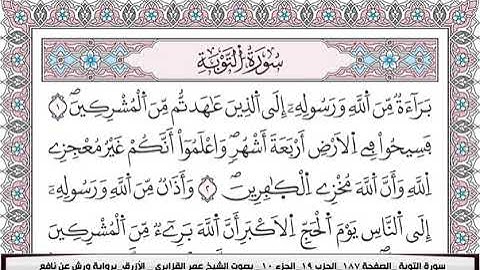 سُورَةُ التَّوْبَةِ
بَرَآءَةٌ مِّنَ اَ۬للَّهِ وَرَسُولِهِۦٓ إِلَى اَ۬لذِينَ عَٰهَدتُّم مِّنَ اَ۬لْمُشْرِكِينَۖ ١
فَسِيحُواْ فِے اِ۬لَارْضِ أَرْبَعَةَ أَشْهُرٖۖ وَاعْلَمُوٓاْ أَنَّكُمْ غَيْرُ مُعْجِزِے
اِ۬للَّهِ وَأَنَّ اَ۬للَّهَ مُخْزِے اِ۬لْكٰ۪فِرِينَۖ ٢ وَأَذَٰنٞ مِّنَ اَ۬للَّهِ وَرَسُولِهِۦٓ
إِلَى اَ۬لنَّاسِ يَوْمَ اَ۬لْحَجِّ اِ۬لَاكْبَرِ أَنَّ اَ۬للَّهَ بَرِےٓءٞ مِّنَ اَ۬لْمُشْرِكِينَ
سورة التوبة _الصفحة ١٨٧_ الحزب ١٩_ الجزء ١٠ _ بصوت الشيخ عمر القزابري _ الأزرق_برواية ورش عن نافع